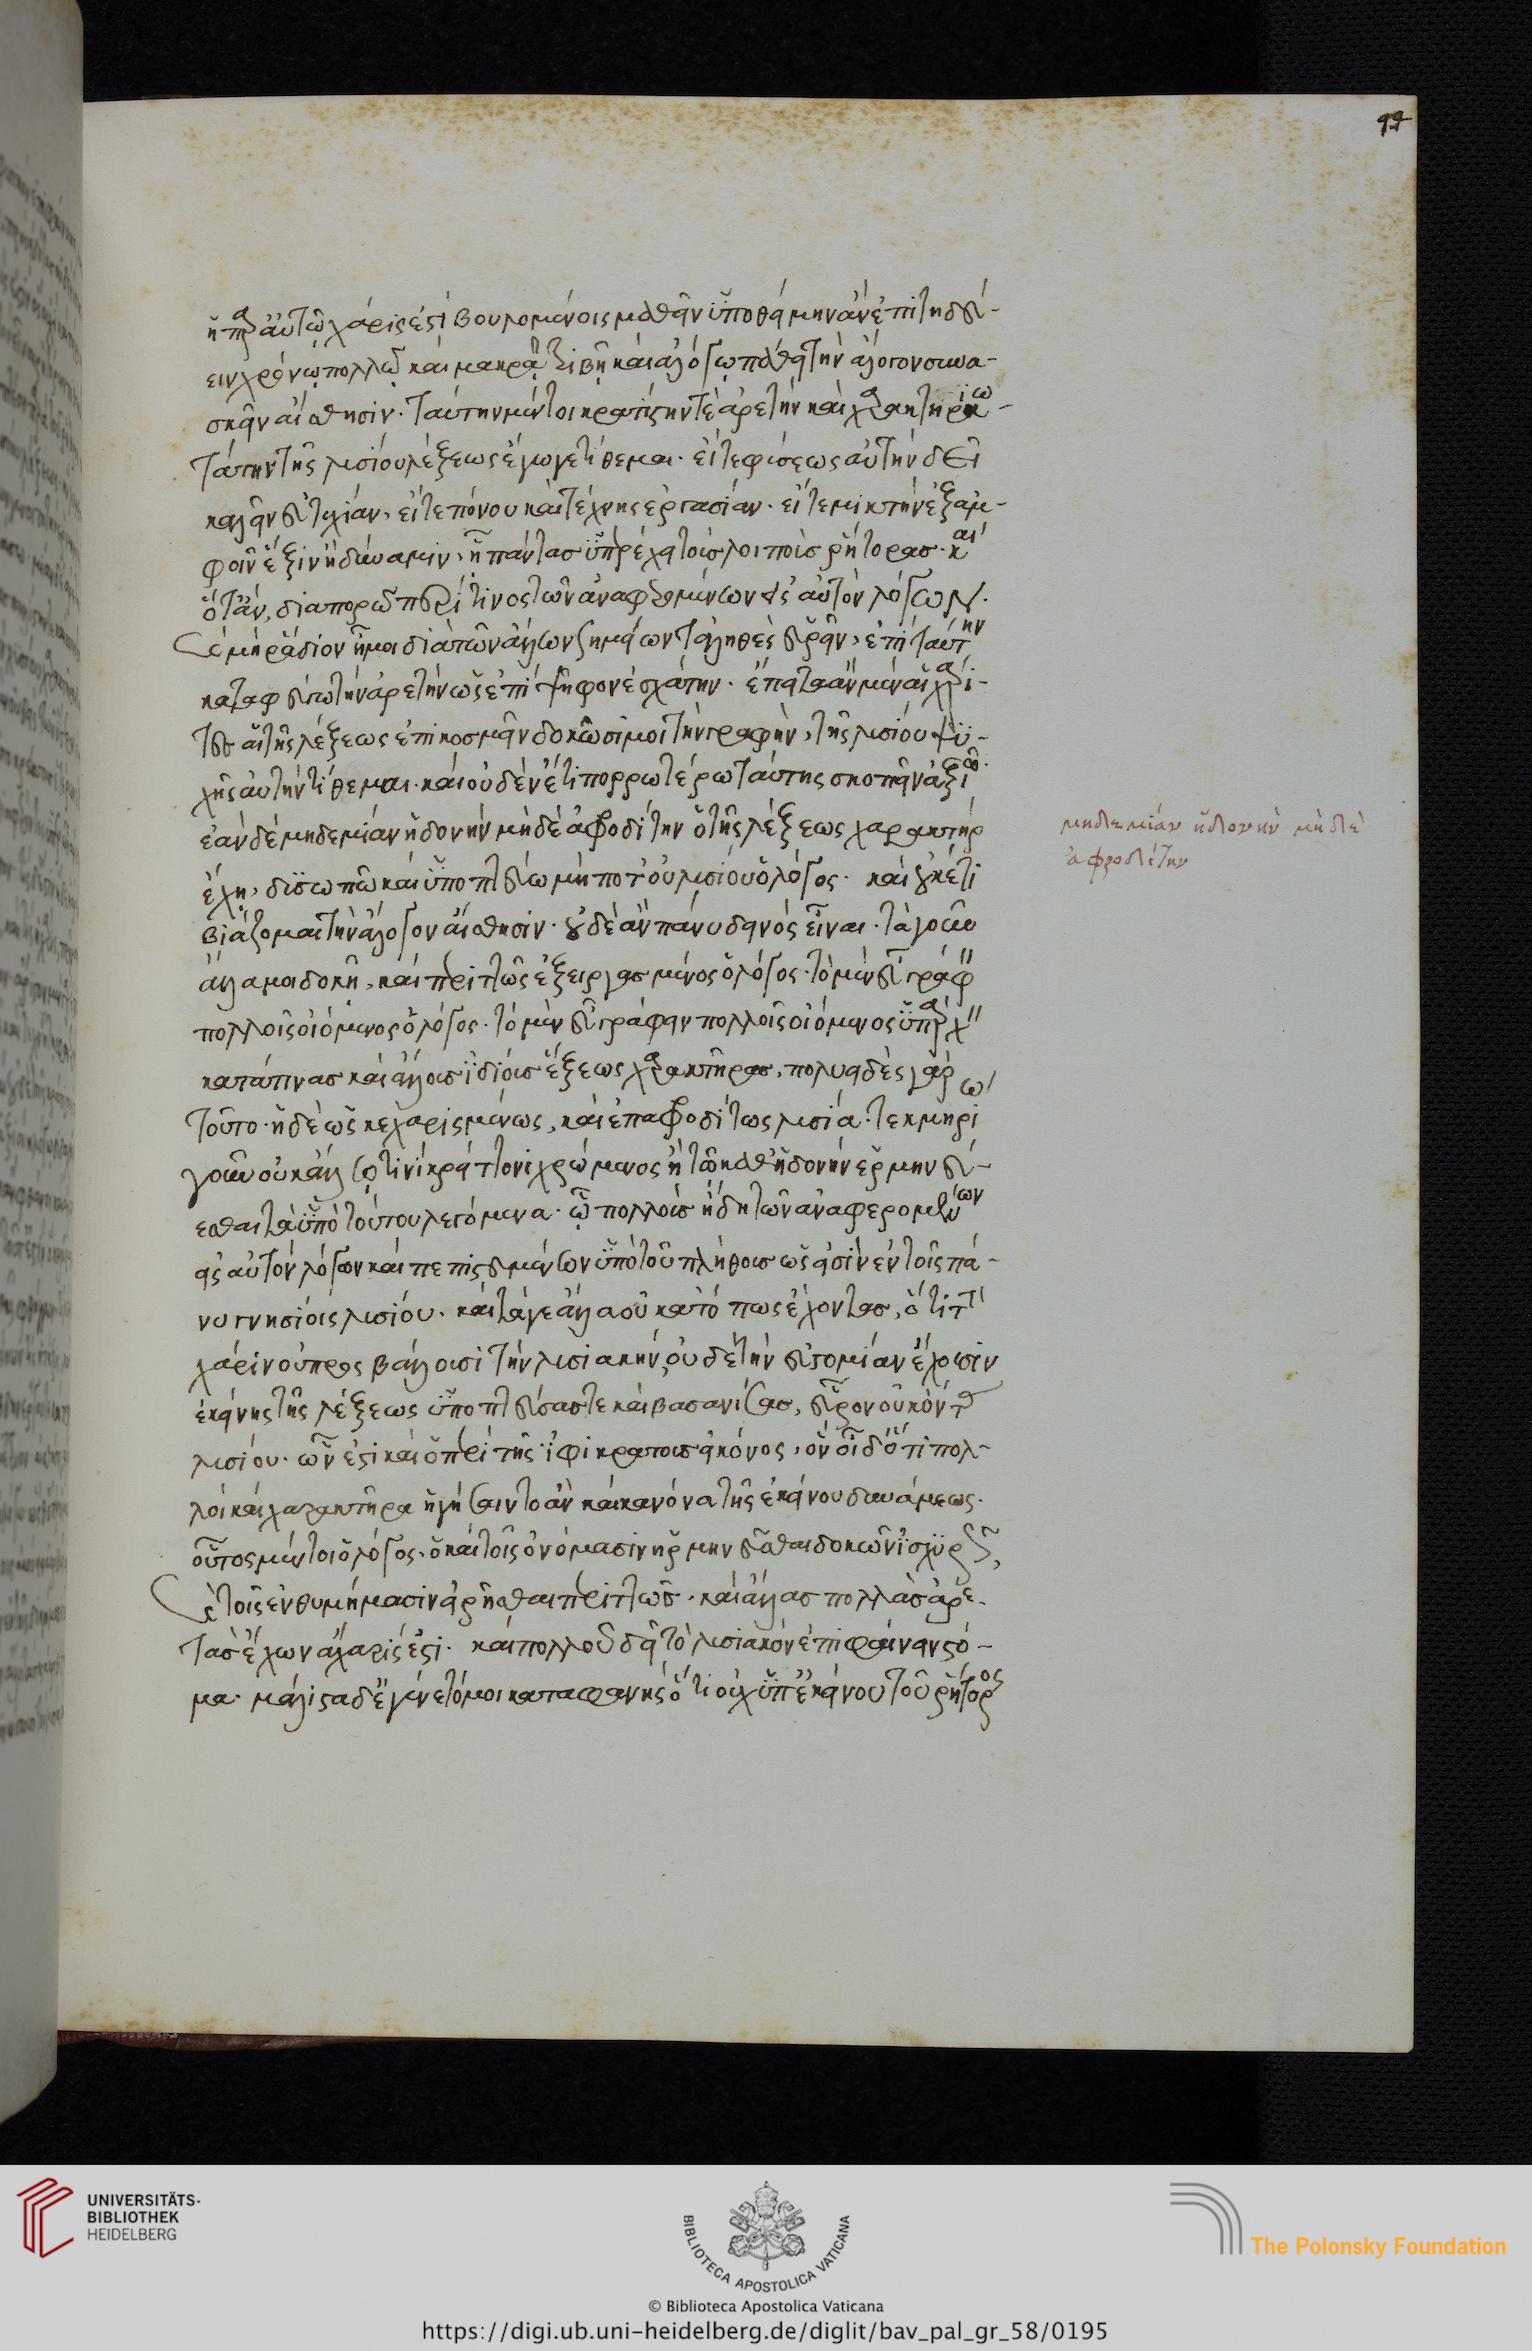 97
ἡ παρ αὐτῶ χάρις ἐστὶ βουλομένοις μαθεῖν ὑποθείμην ἂν ἐπιτηδεύ-
ειν χρόνῳ πολλῷ καὶ μακρᾷ τριβῇ καὶ ἀλόγῳ πάθει τὴν ἄλογον συνα-
σκεῖν αἴσθησιν. ταύτην μέντοι κρατίστην τὲ ἀρετὴν καὶ χαρακτηρικω-
τάτην τῆς λυσίου λέξεως ἔγωγε τίθεμαι. εἴτε φύσεως αὐτὴν δεῖ
καλεῖν εὐτυχίαν, εἴτε πόνου καὶ τέχνης ἐργασίαν. εἴτε μικτὴν ἐξ ἀμ-
φοῖν ἕξιν ἢ δύναμιν, ἧ πάντας ὑπερέχει τοὺς λοιποὺς ῥήτορας. καὶ
ὅταν, διαπορῶ περί τινος τῶν ἀναφερομένων εἰς αὐτὸν λόγων.
καὶ μὴ ῥάδιον ᾖ μοι διὰ τῶν ἄλλων σημείων τἀληθὲς εὑρεῖν, ἐπὶ ταύτην
καταφεύγω τὴν ἀρετὴν ὡς ἐπὶ ψῆφον ἐσχάτην. ἔπειτα ἂν μὲν αἱ χάρι-
τες αἱ τῆς λέξεως ἐπικοσμεῖν δοκῶσί μοι τὴν γραφὴν, τῆς λυσίου ψυ-
χῆς αὐτὴν τίθεμαι. καὶ οὐδὲν ἔτι πορρωτέρω ταύτης σκοπεῖν ἀξιῶ.
ἐὰν δὲ μηδεμίαν ἡδονὴν μηδὲ ἀφροδίτην ὁ τῆς λέξεως χαρακτὴρ
ἔχῃ, δυσωπῶ καὶ ὑποπτεύω μή ποτ' οὐ λυσίου ὁ λόγος. καὶ οὐκέτι
βιάζομαι τὴν ἄλογον αἴσθησιν. οὐδὲ ἂν πάνυ δεινὸς εἶναι. τὰ γοῦν
ἄλλα μοι δοκῇ, καὶ περιττῶς ἐξειργασμένος ὁ λόγος. τὸ μὲν εὖ γράφ
πολλοῖς οἰόμενος ὁ λόγος. τὸ μὲν εὖ γράφειν πολλοῖς οἰόμενος ὑπάρχ
κατά τινας καὶ ἄλλους ἰδίους ἕξεως χαρακτῆρας, πολυειδὲς γὰρ
τοῦτο. ἡδέως κεχαρισμένως, καὶ ἐπαφροδίτως λυσία. τεκμηρίω
γοῦν οὐκ ἄλλῳ τινὶ κράττονι χρώμενος ἢ τῶ καθ' ἡδονὴν ἑρμηνεύ-
εσθαι τὰ ὑπὸ τούτου λεγόμενα. ᾧ πολλοὺς ἤδη τῶν ἀναφερομένων
εἰς αὐτὸν λόγων καὶ πεπιστευμένων ὑπὸ τοῦ πλήθους ὡς εἰσὶν ἐν τοῖς πά-
νυ γνησίοις λυσίου. καὶ τά γε ἄλλα οὐκ ἀτόπως ἔχοντας, ὅτι τὴ
χάριν οὐ προσβάλλουσι τὴν λυσιακὴν, οὐδὲ τὴν εὐστομίαν ἔχουσιν
ἐκείνης τῆς λέξεως ὑποπτεύσας τε καὶ βασανίσας, εὗρον οὐκ ὄντ
λυσίου. ὧν ἐστι καὶ ὁ περὶ τῆς ἰφικράτους εἰκόνος, ὃν οἶδ' ὅτι πολ-
λοὶ καὶ χαρακτῆρα ἡγήσαιντο ἂν καὶ κανόνα τῆς ἐκείνου δυνάμεως.
οὗτος μέντοι ὁ λόγος, ὁ καὶ τοῖς ὀνόμασιν ἡρμηνεῦσθαι δοκῶν ἰσχυρῶς,
καὶ τοῖς ἐνθυμήμασιν εἰρῆσθαι περιττῶς. καὶ ἄλλας πολλὰς ἀρε-
τὰς ἔχων ἄχαρίς ἐστι. καὶ πολλοῦ δεῖ τὸ λυσιακὸν ἐπιφαίνειν στό-
μα. μάλιστα δ' ἐγένετό μοι καταφανὴς ὅτι οὐχ ὑπ' ἐκείνου τοῦ ῥήτορος
μηδεμίαν ἡδονὴν μηδὲ
ἀφροδίτην
UNIVERSITÄTS-
BIBLIOTHEK
HEIDELBERG
BIBLIOTECA APOSTOLICA VATICANA
© Biblioteca Apostolica Vaticana
The Polonsky Foundation
https://digi.ub.uni-heidelberg.de/diglit/bav_pal_gr_58/0195